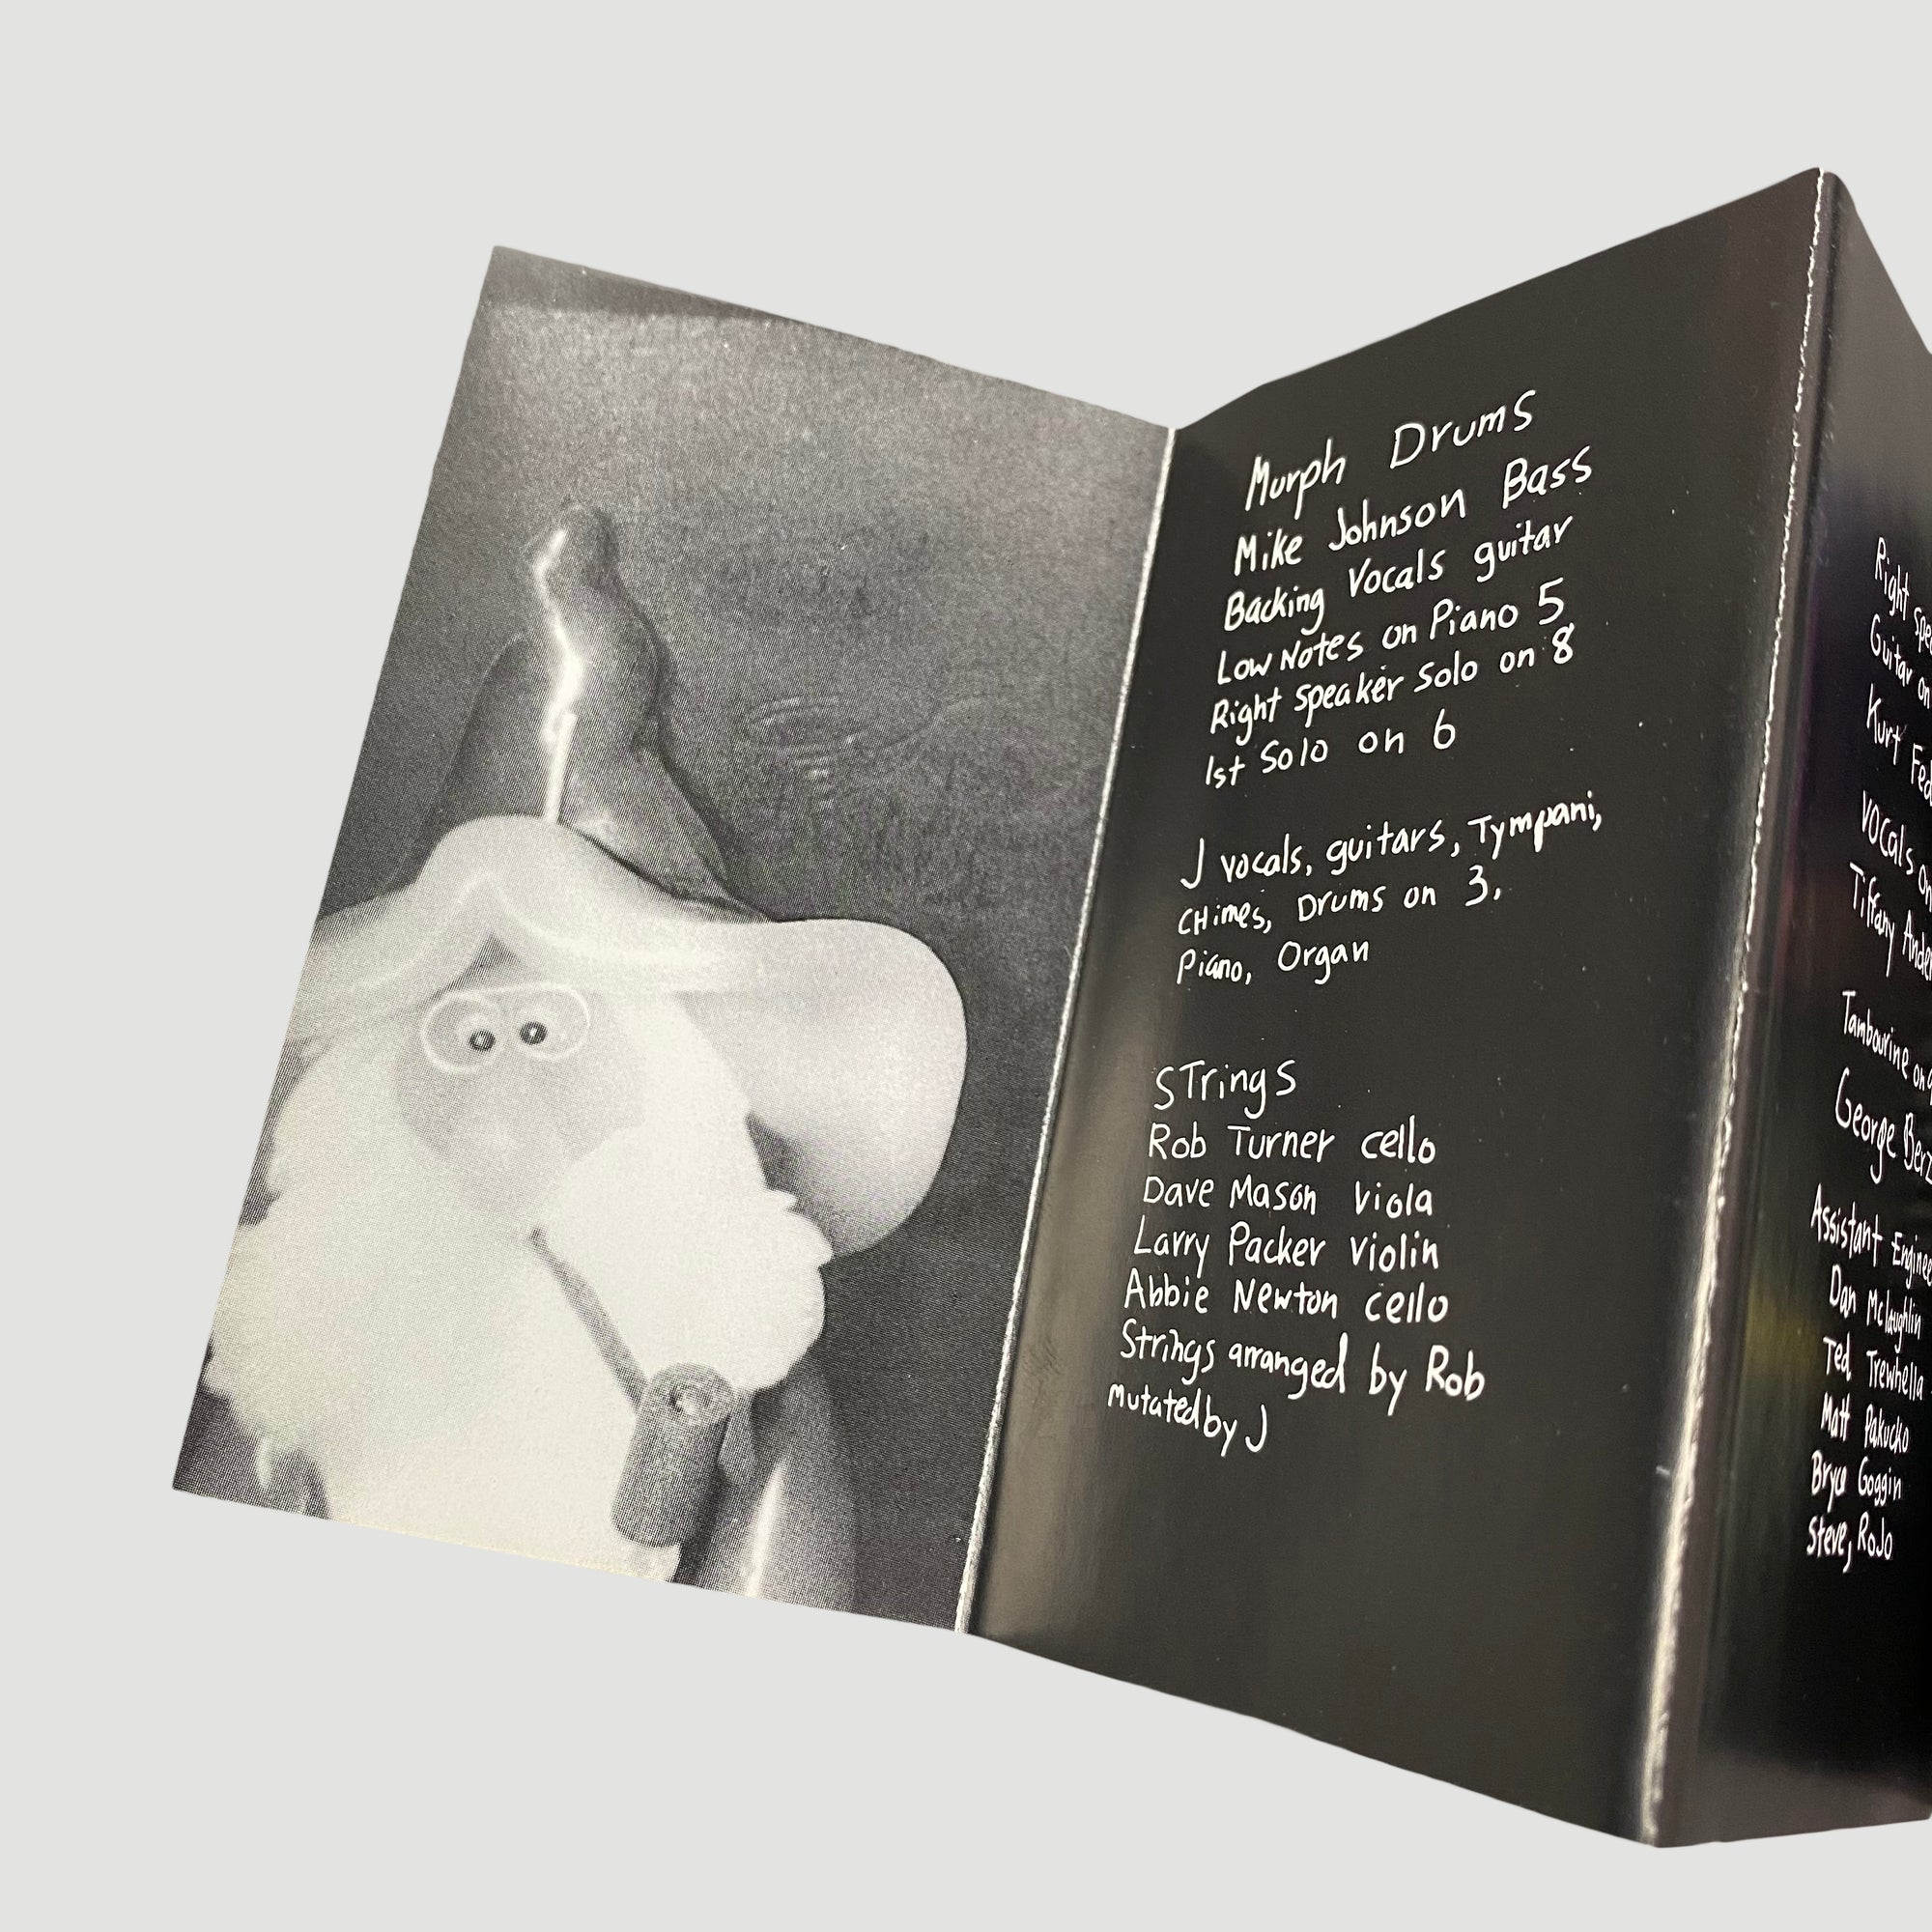 Murph Drums
Mike Johnson Bass
Backing Vocals guitar
Low Notes on Piano 5
Right speaker Solo on 8
1st Solo on 6
J vocals, guitars, Tympani,
CHimes, Drums on 3,
Piano, Organ
STringS
Rob Turner cello
Dave Mason Viola
Larry Packer violin
Abbie Newton cello
Strings arranged by Rob
mutated by J
Right
Guitar on
Kurt
Vocals on
Tiffany
Tambourine on
George
Assistant
Dan Mclaughlin
Ted Trewhella
Matt Pakucko
Bryce Goggin
Steve, RoJo